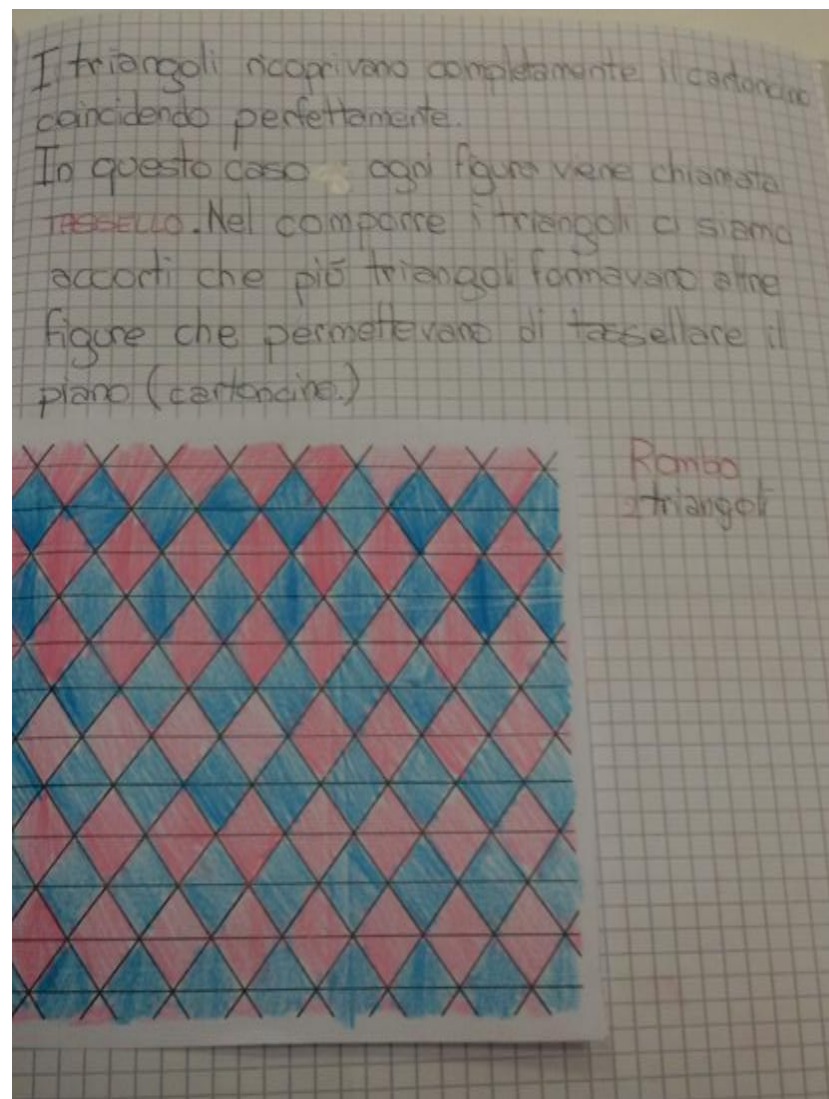 I triangoli ricoprivano completamente il cartoncino
coincidendo perfettamente.
In questo caso ogni figura viene chiamata
TASSELLO. Nel comporre i triangoli ci siamo
accorti che più triangoli formavano altre
figure che permettevano di tassellare il
piano (cartoncino.)
Rombo
2 triangoli